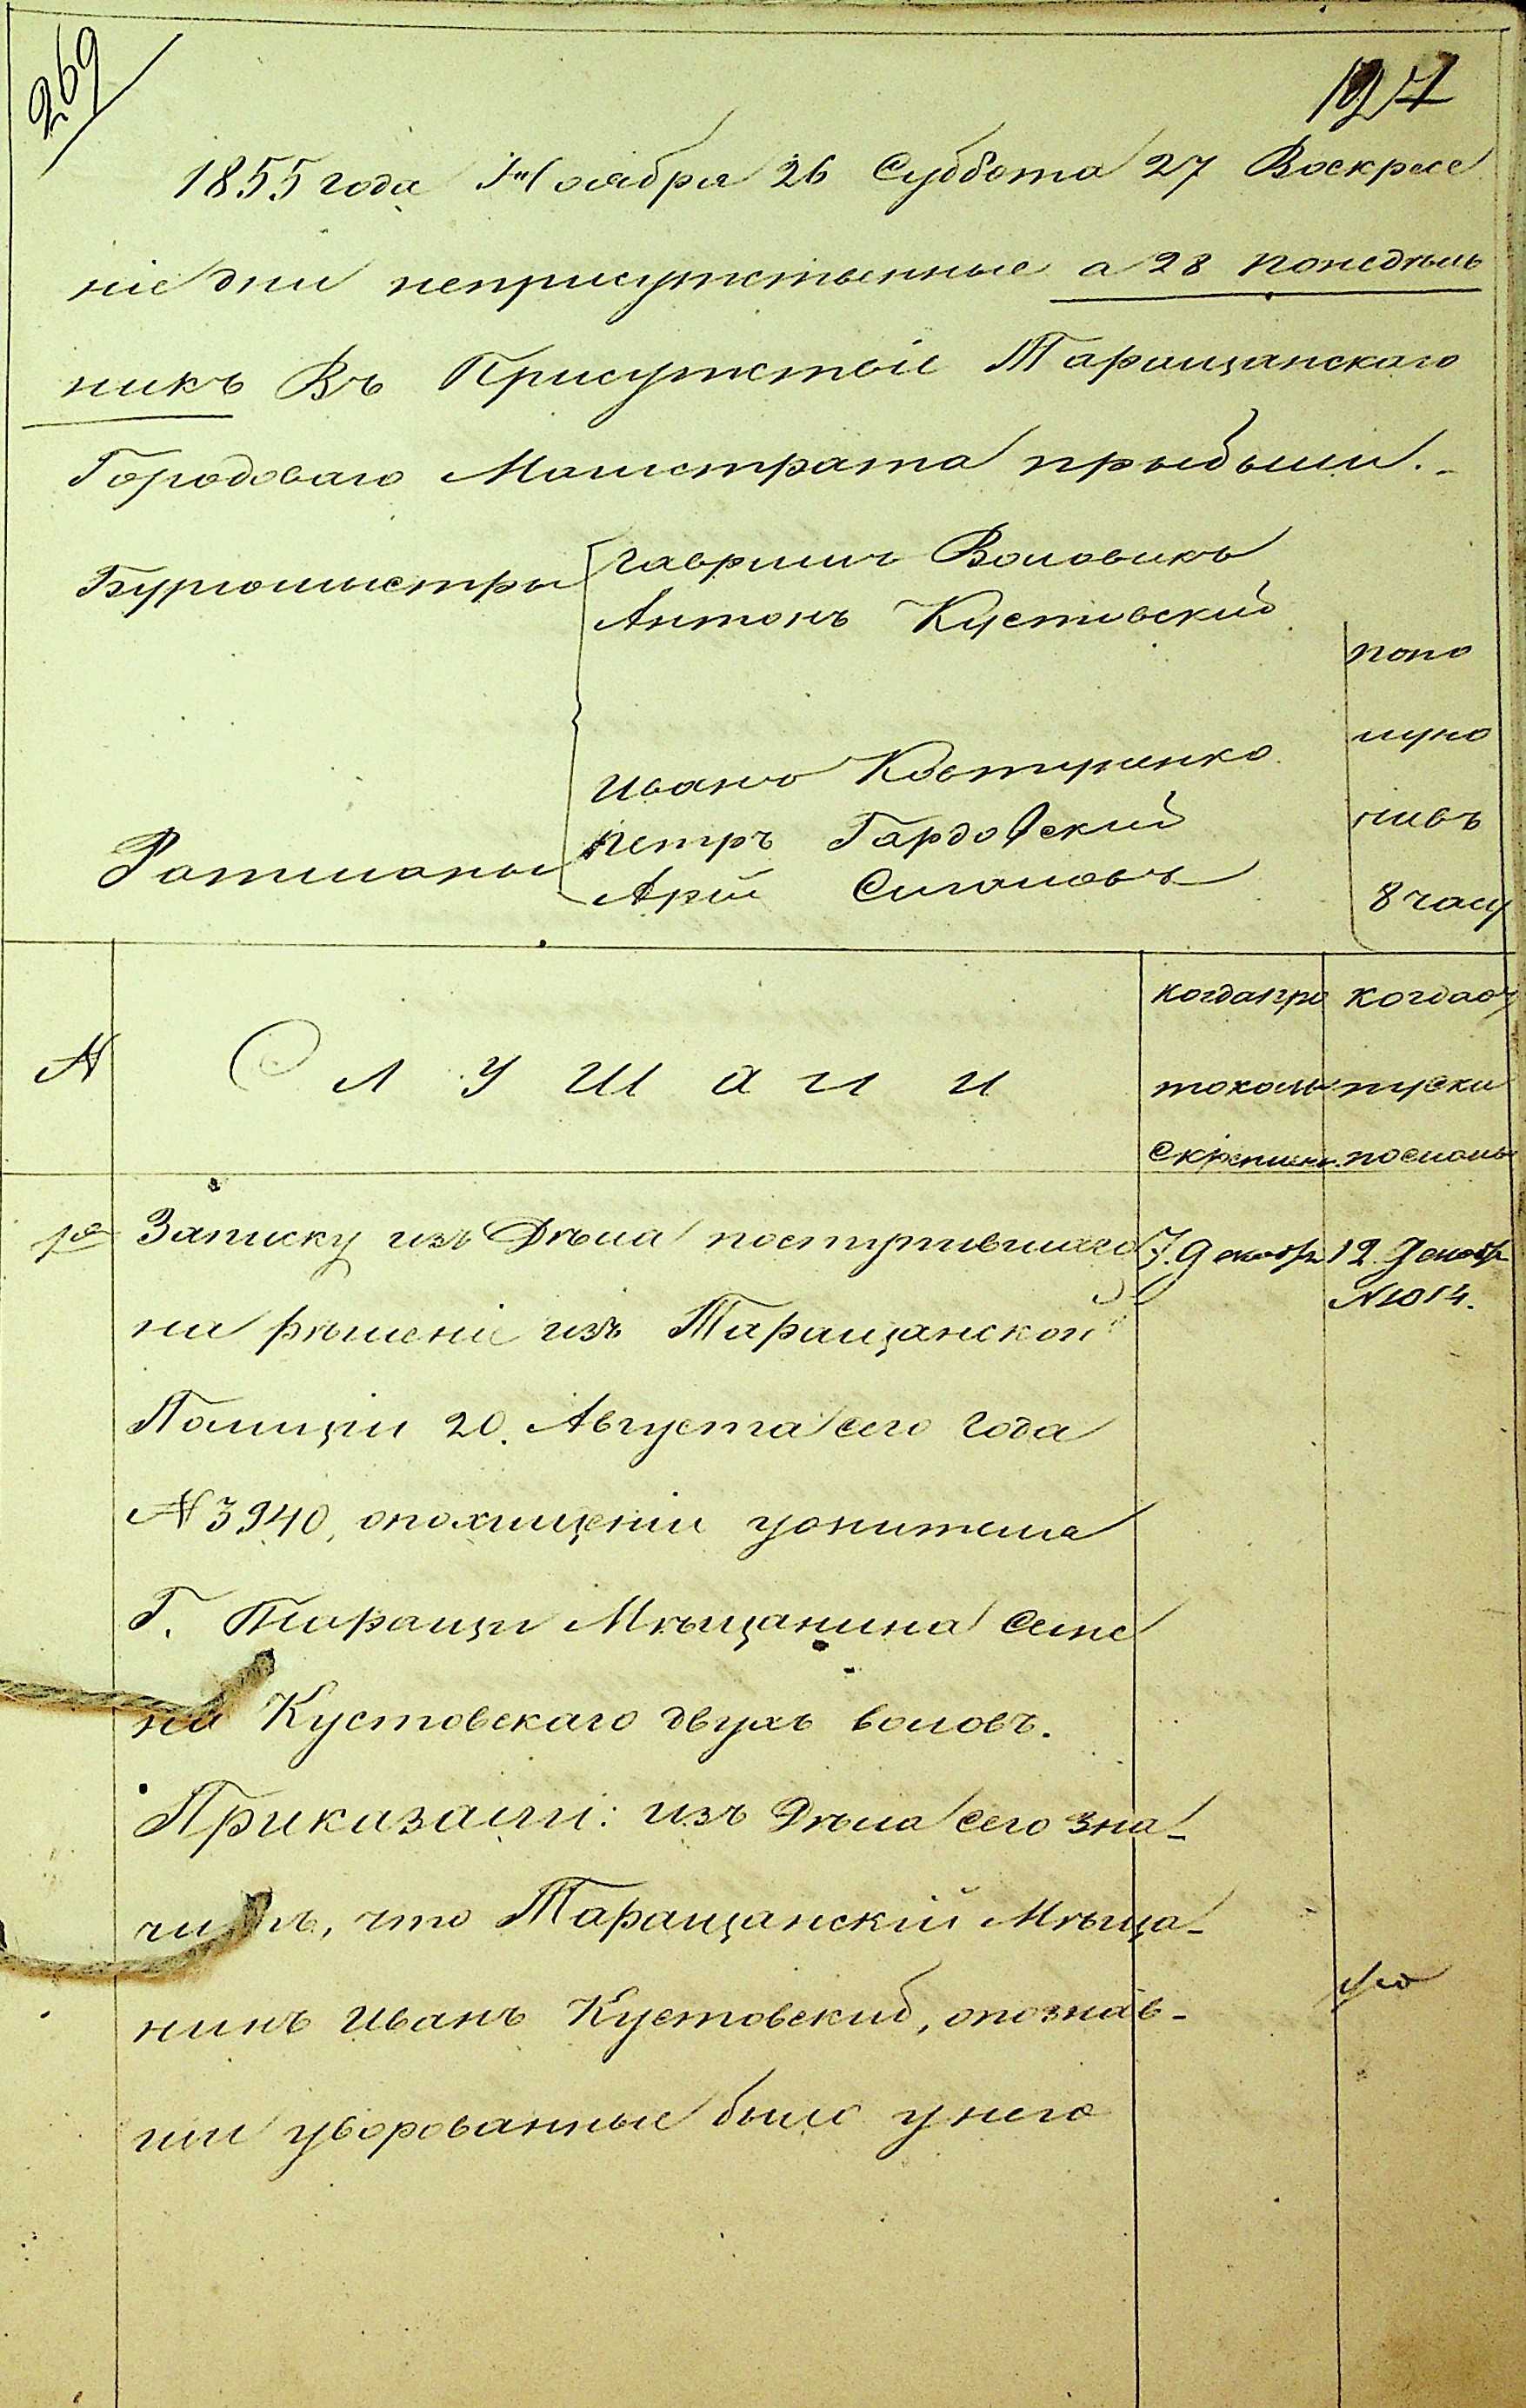 269
1855 года Ноября 26 Суббота 27 Воскресе
ніе дни неприсутственные а 28 понедѣль
никъ Въ Присутствіе Таращанскаго
Городоваго Магистрата прыбыли.
Бургомыстры
Гаврыилъ Воловикъ
Антонъ Кустовский
Иванъ Костуренко
Петръ Гардовский
Арій
Ратманы
попо
луно
чивъ
8 часу
№
Слушали
когда про
токолъ
скрѣплен.
когда от
пуски
посланы
1е
Записку изъ Дѣла поступившаго
на рѣшеніе изъ Таращанской
Полиціи 20. Августа сего года
№ 3940, опохищеніи ужителя
Г. Таращи Мѣщанина Семе
на Кустовскаго двухъ воловъ.
Приказали: изъ Дѣла сего зна-
читъ, что Таращанскій Мѣща-
нинъ Иванъ Кустовский, опознав-
ши уворованные было унего
7. Декабр
12. Декабр
№ 1014.